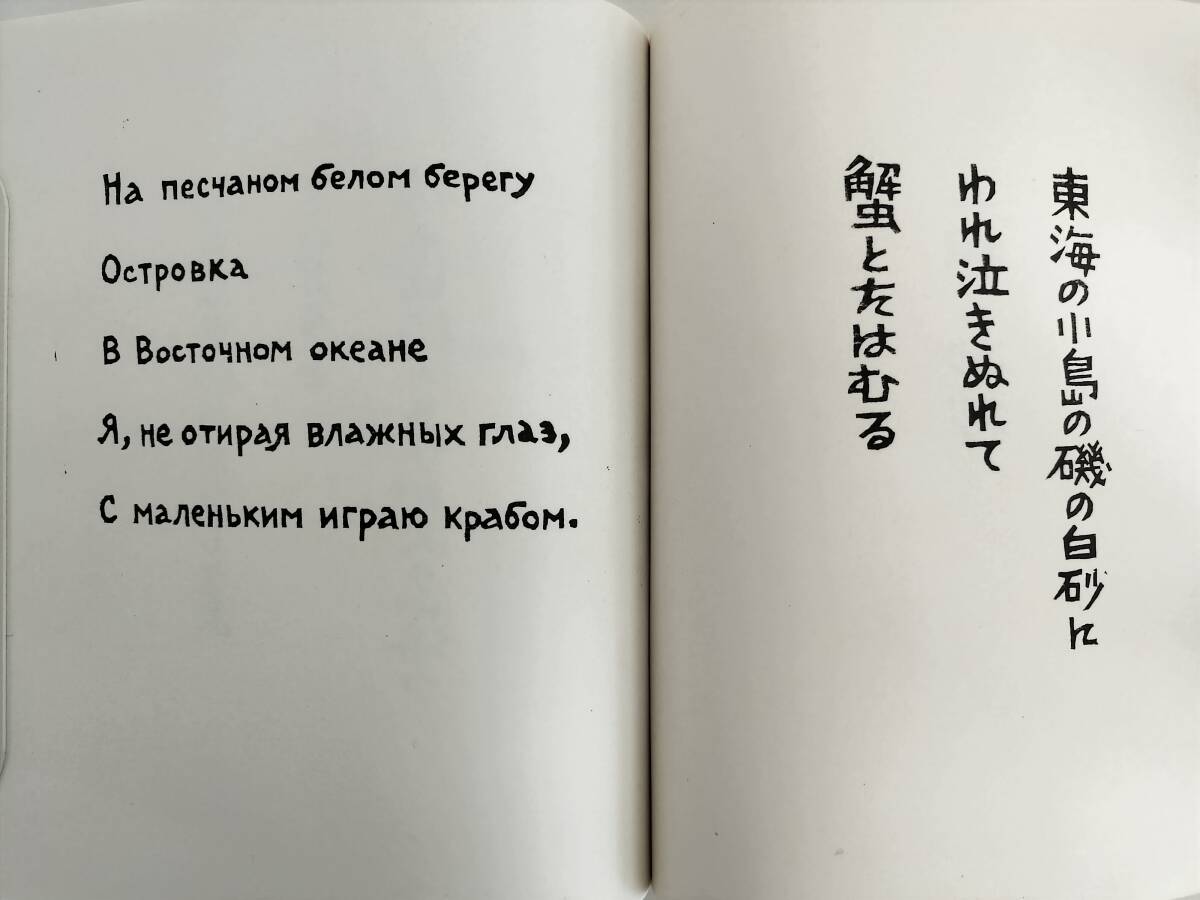 На песчаном белом берегу
Островка
В Восточном океане
Я, не отирая влажных глаз,
С маленьким играю крабом.
東海の小島の磯の白砂に
われ泣きぬれて
蟹とたはむる